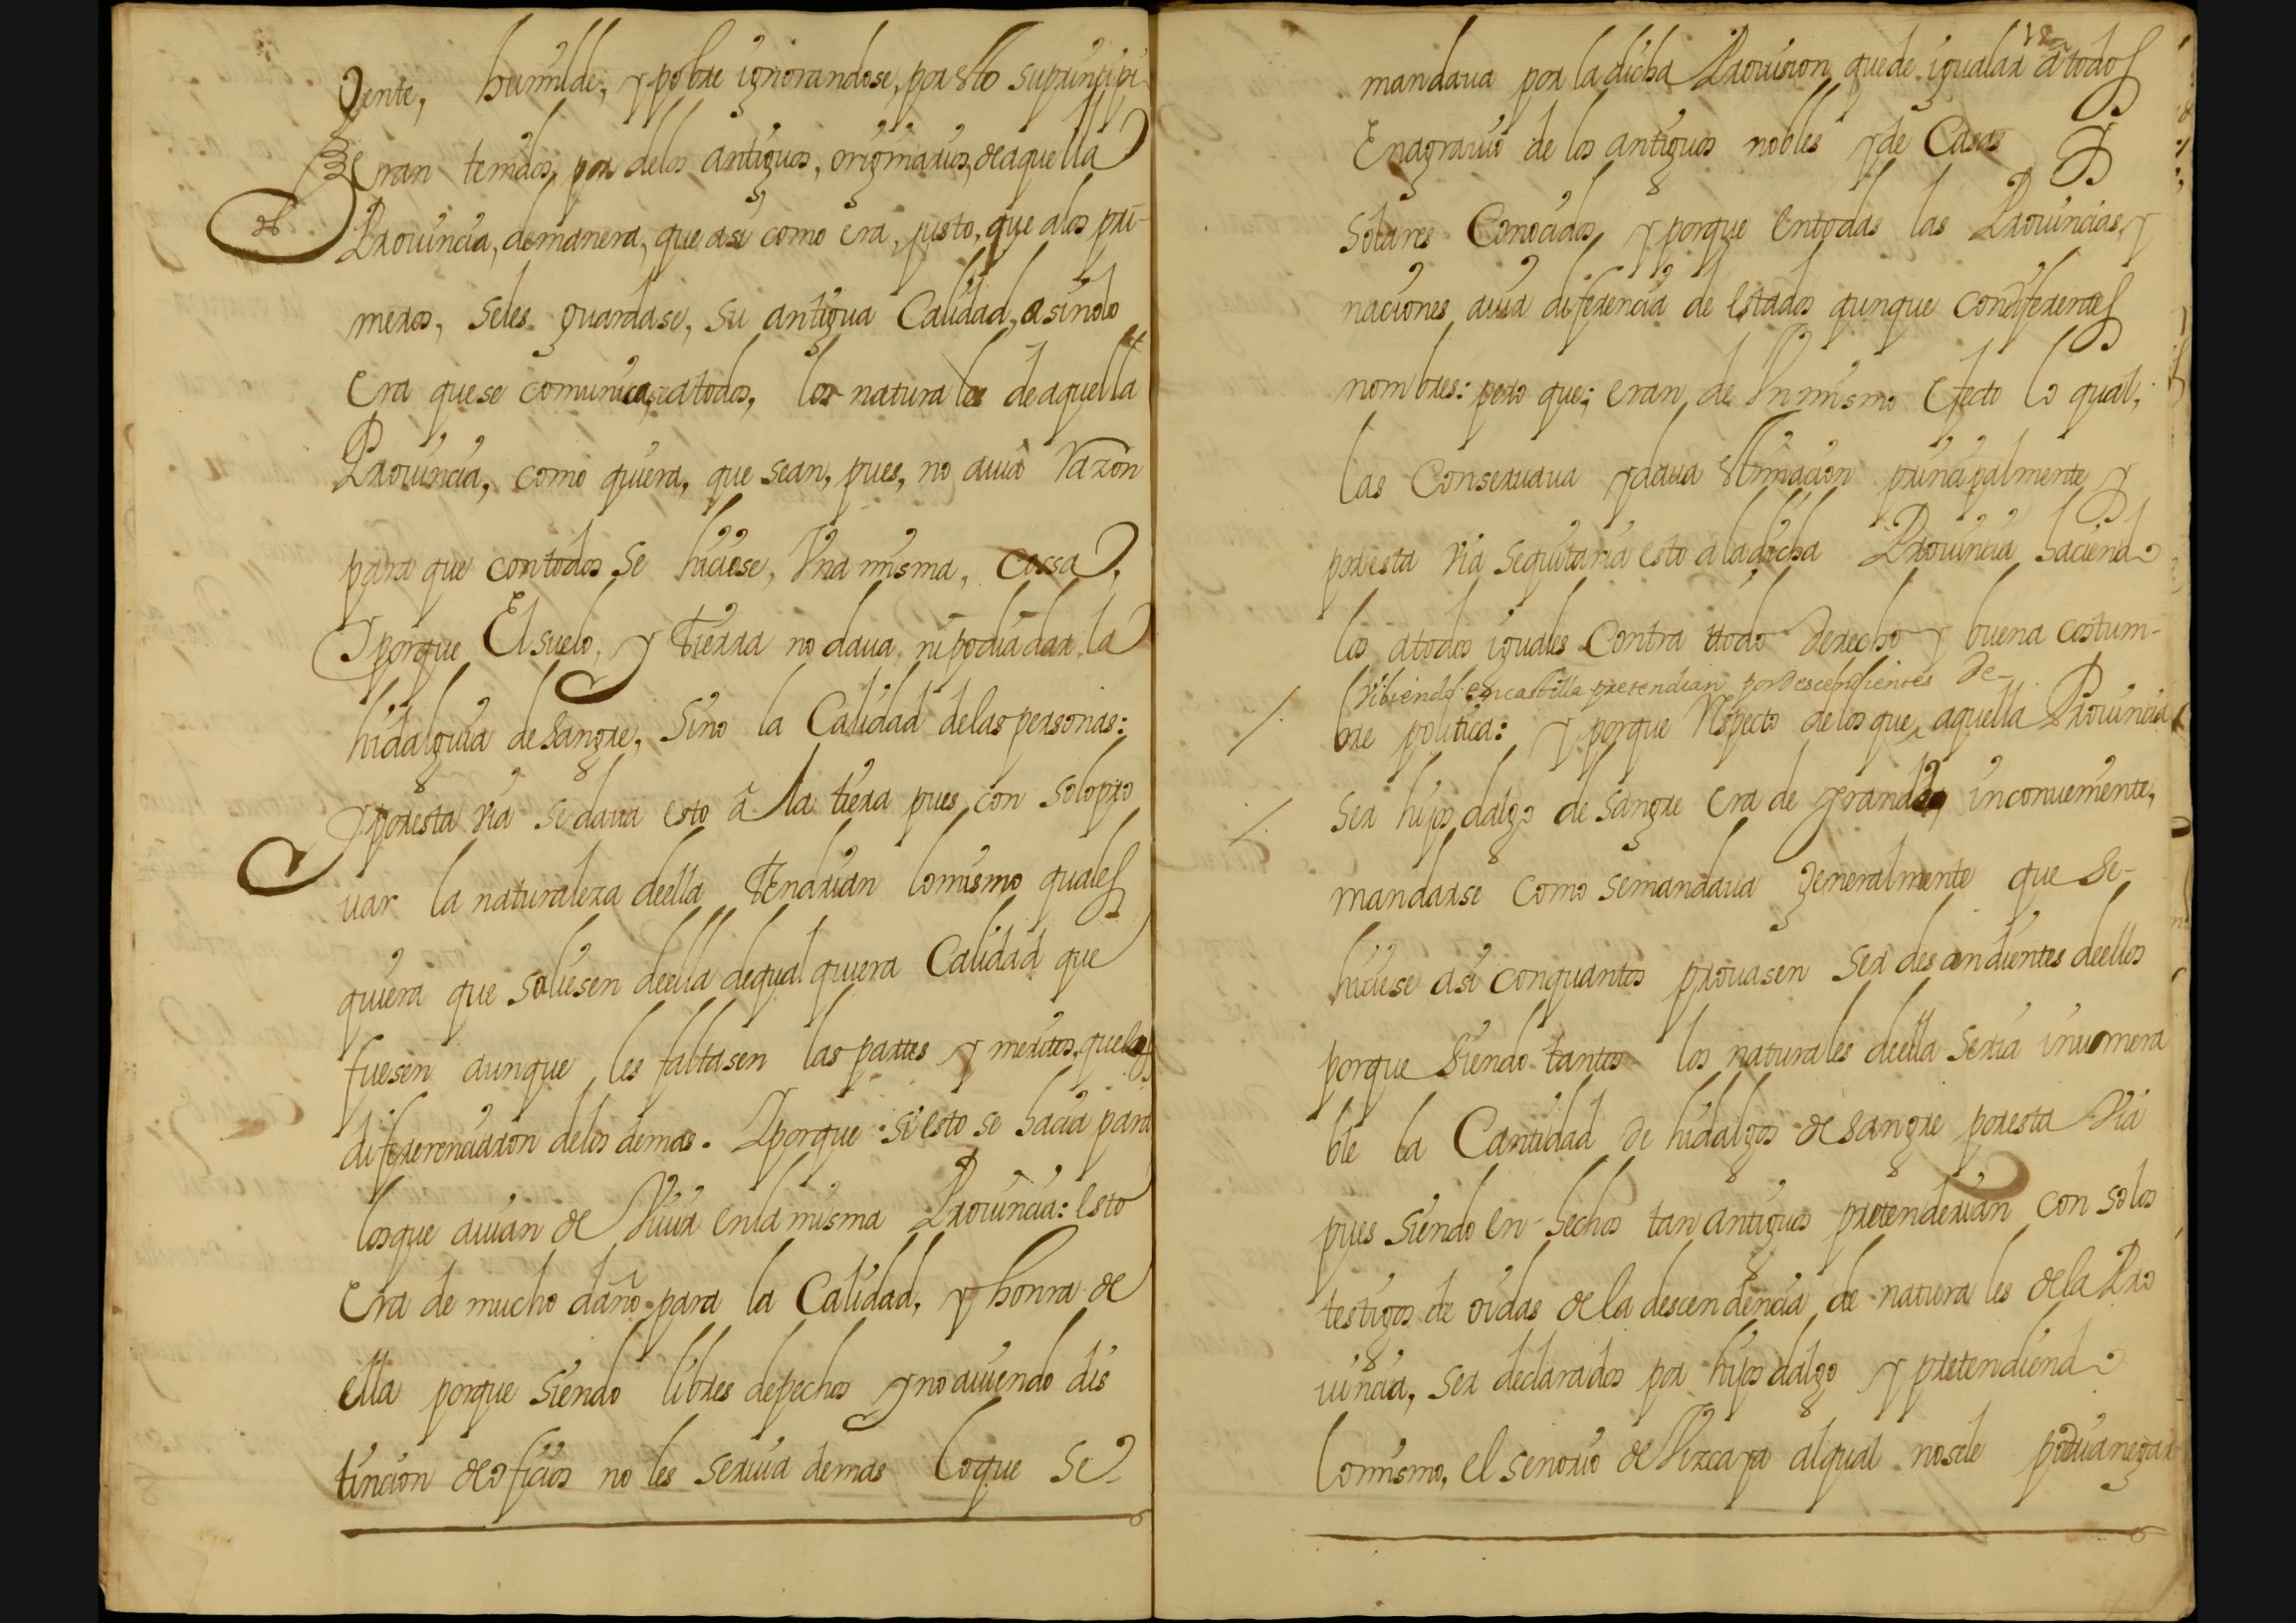 Jente, humilde, y pobre ignorandose, por Esto su principi
Eran temidos, por delos antiguos, originarios, de aquella
Prouincia, demanera, que asi como era, justo, que alos pri-
meros, seles guardase, su antigua Calidad, asi nolo
Era que se comunicase atodos, los naturales de aquella
Prouincia, como quiera, que sean, pues, no auia Razon
para que contodos se hiciese, Vna misma, cossa,
Y porque El suelo, y tierra no daua, ni podia dar, la
hidalguia de sangre, Sino la Calidad de las personas:
y por esta via se daua esto â la tierra pues con solo pro
uar la naturaleza deella tendrian lo mismo quales
quiera que saliesen deella de qual quiera Calidad que
fuesen aunque les faltasen las partes y meritos, que los
difererenciaron delos demas. Y porque si esto se hacia para
los que auian de Viuir en la misma Prouincia: Esto
Era de mucho daño para la Calidad, y honrra de
ella porque siendo libres de pechos y no auiendo dis
tincion de oficios no les seruia demas Loque se
18
mandaua por la dicha Prouision que de igualar â todos
En agrauio de los antiguos nobles y de Casas
Solares Conocidos, y porque En todas las Prouincias, y
naciones auia diferencia de Estados aunque con diferentes
nombres: pero que; eran, de Vn mismo Efecto lo qual,
las Conseruaua y daua Estimacion principalmente y
por esta via se quitaria esto a la dicha Prouincia haciendo
los atodos iguales Contra todo derecho y buena costum-
Vibiendo en castilla pretendian por descendientes De-
bre politica: y porque Respecto de los que, aquella Prouincia
ser hijos dalgo de sangre era de grande inconueniente,
mandarse como se mandaua generalmente que se-
hiciese asi con quantos prouasen ser descendientes deellos
porque siendo tantos los naturales deella seria inumera
ble la Cantidad de hidalgos de sangre por esta via
pues siendo En hechos tan antiguos pretenderian con solos
testigos de oidas de la descendencia de naturales de la Pro
uincia, ser declarados por hijos dalgo y pretendiendo
lo mismo, el señorio de Vizcaya al qual no se le podria negar